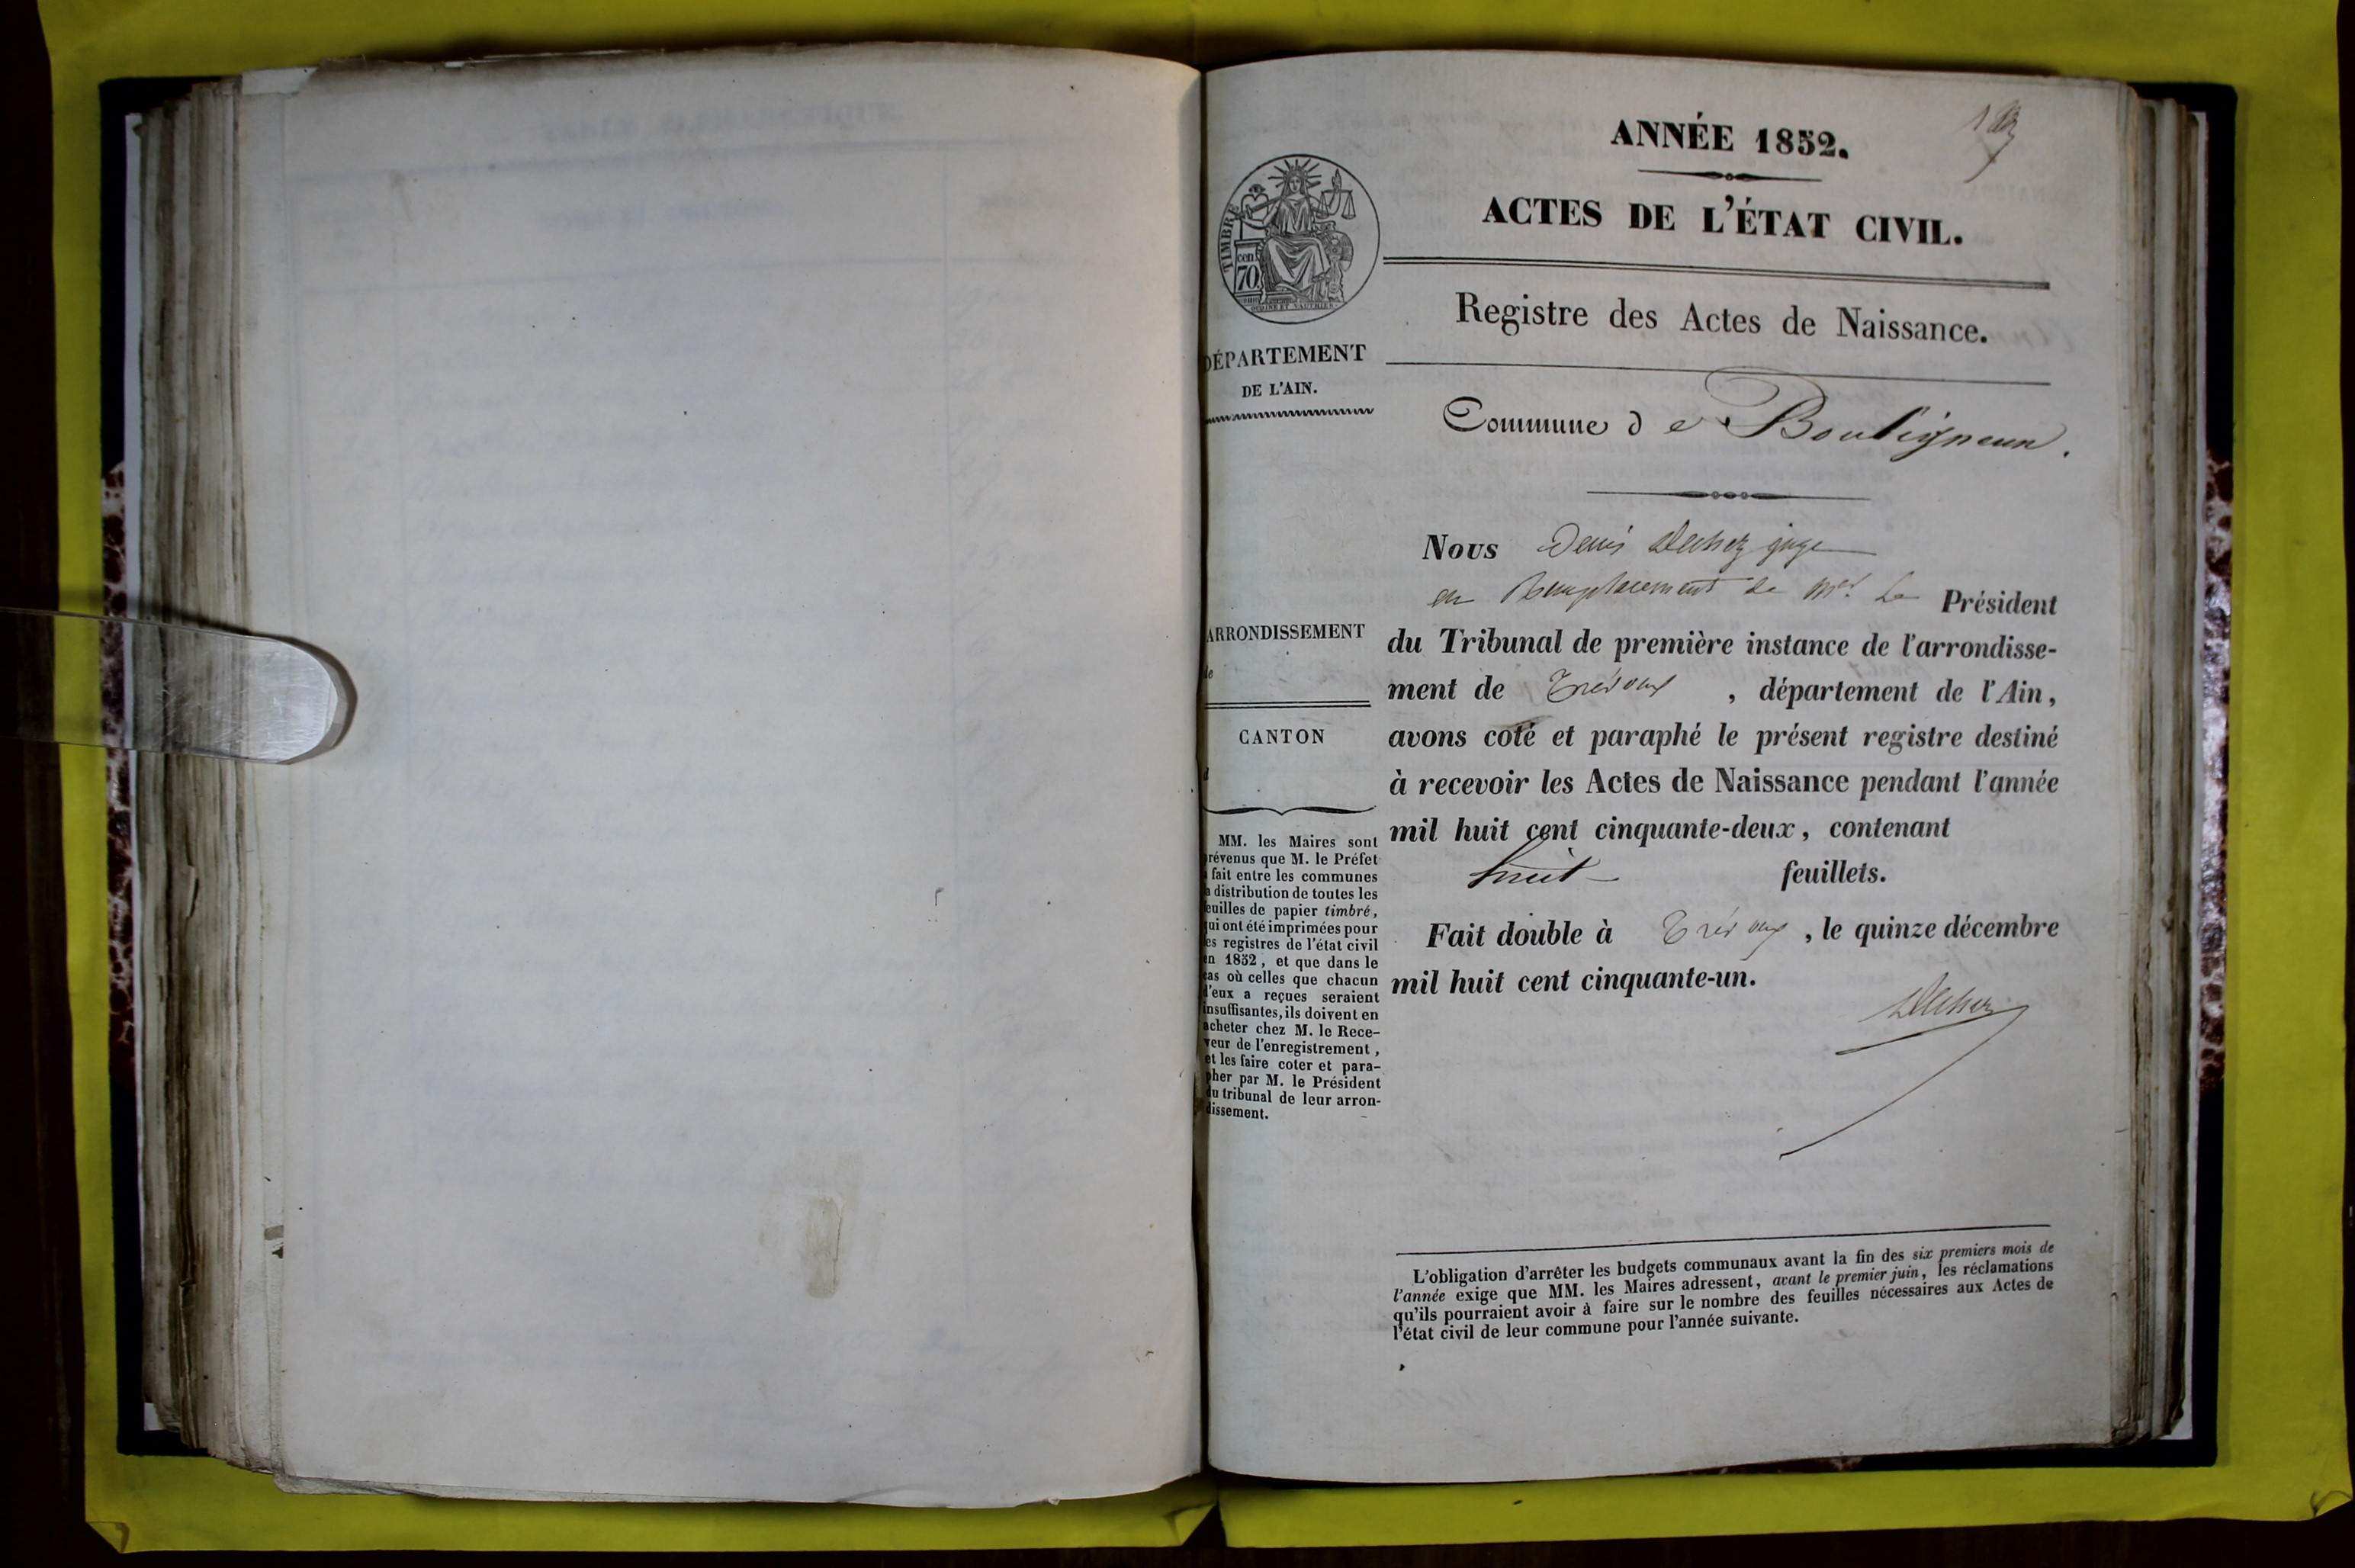 ANNÉE 1852.
ACTES DE L'ÉTAT CIVIL.
TIMBRE
cen.
70
Registre des Actes de Naissance.
DÉPARTEMENT
DE L'AIN.
Commune de Bouligneux.
Nous Denis juge
en Remplacement de Mr. Le Président
du Tribunal de première instance de l'arrondisse-
ment de Trévoux, département de l'Ain,
avons coté et paraphé le présent registre destiné
à recevoir les Actes de Naissance pendant l'année
mil huit cent cinquante-deux, contenant
huit feuillets.
Fait double à Trévoux, le quinze décembre
mil huit cent cinquante-un.
ARRONDISSEMENT
de
CANTON
d
MM. les Maires sont
prévenus que M. le Préfet
a fait entre les communes
la distribution de toutes les
feuilles de papier timbré,
qui ont été imprimées pour
les registres de l'état civil
en 1852, et que dans le
cas où celles que chacun
d'eux a reçues seraient
insuffisantes, ils doivent en
acheter chez M. le Rece-
veur de l'enregistrement,
et les faire coter et para-
pher par M. le Président
du tribunal de leur arron-
dissement.
L'obligation d'arrêter les budgets communaux avant la fin des six premiers mois de
l'année exige que MM. les Maires adressent, avant le premier juin, les réclamations
qu'ils pourraient avoir à faire sur le nombre des feuilles nécessaires aux Actes de
l'état civil de leur commune pour l'année suivante.